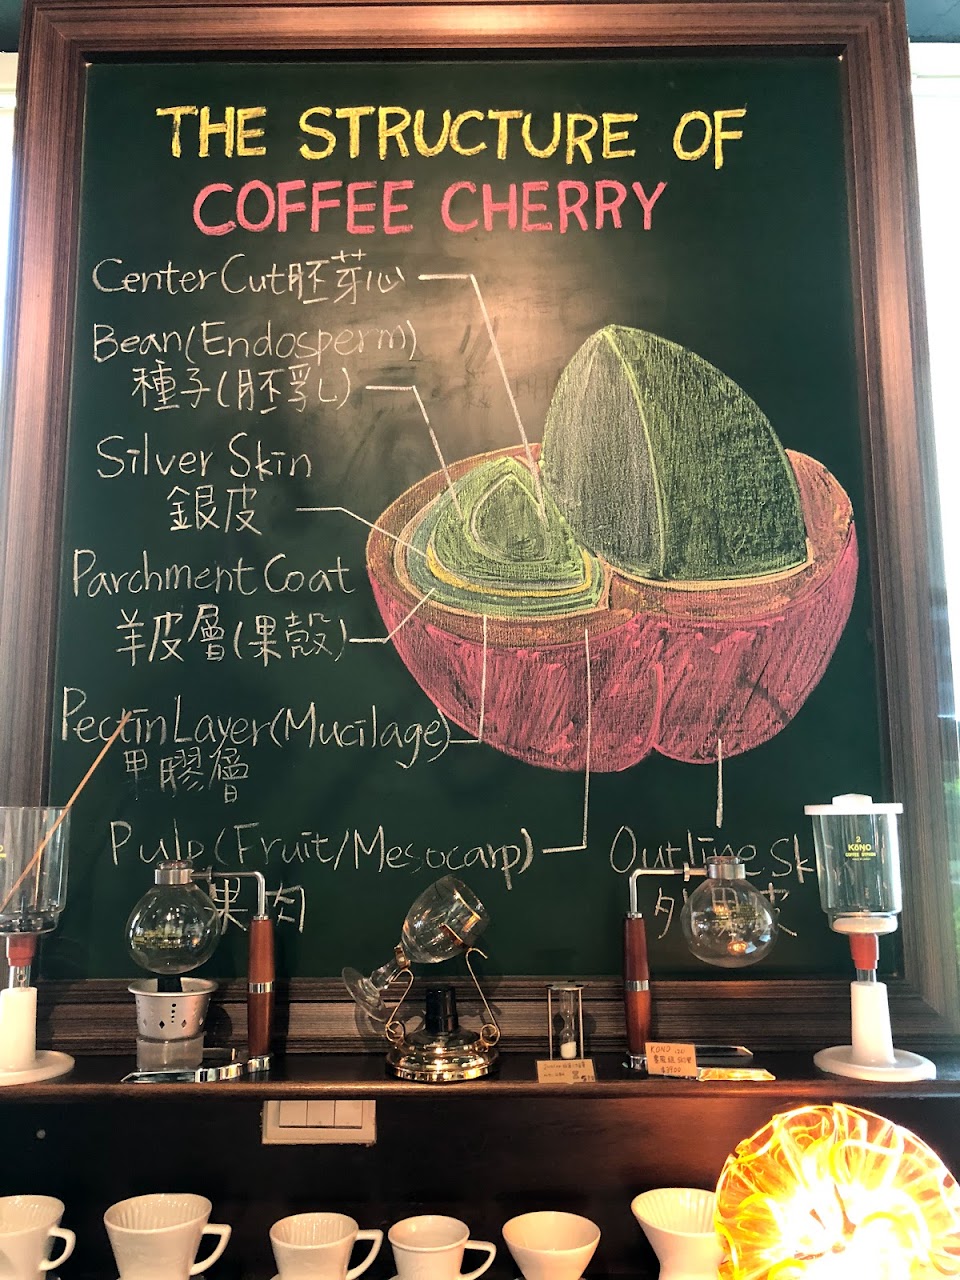 THE STRUCTURE OF
COFFEE CHERRY
Center Cut胚芽心
Bean(Endosperm)
種子(胚乳)
Silver Skin
銀皮
Parchment Coat
羊皮層(果殼)
Pectin Layer(Mucilage)
果膠層
Pulp(Fruit/Mesocarp)
果肉
Outline Sk
外果皮
2
KōNO
KONO
$3900